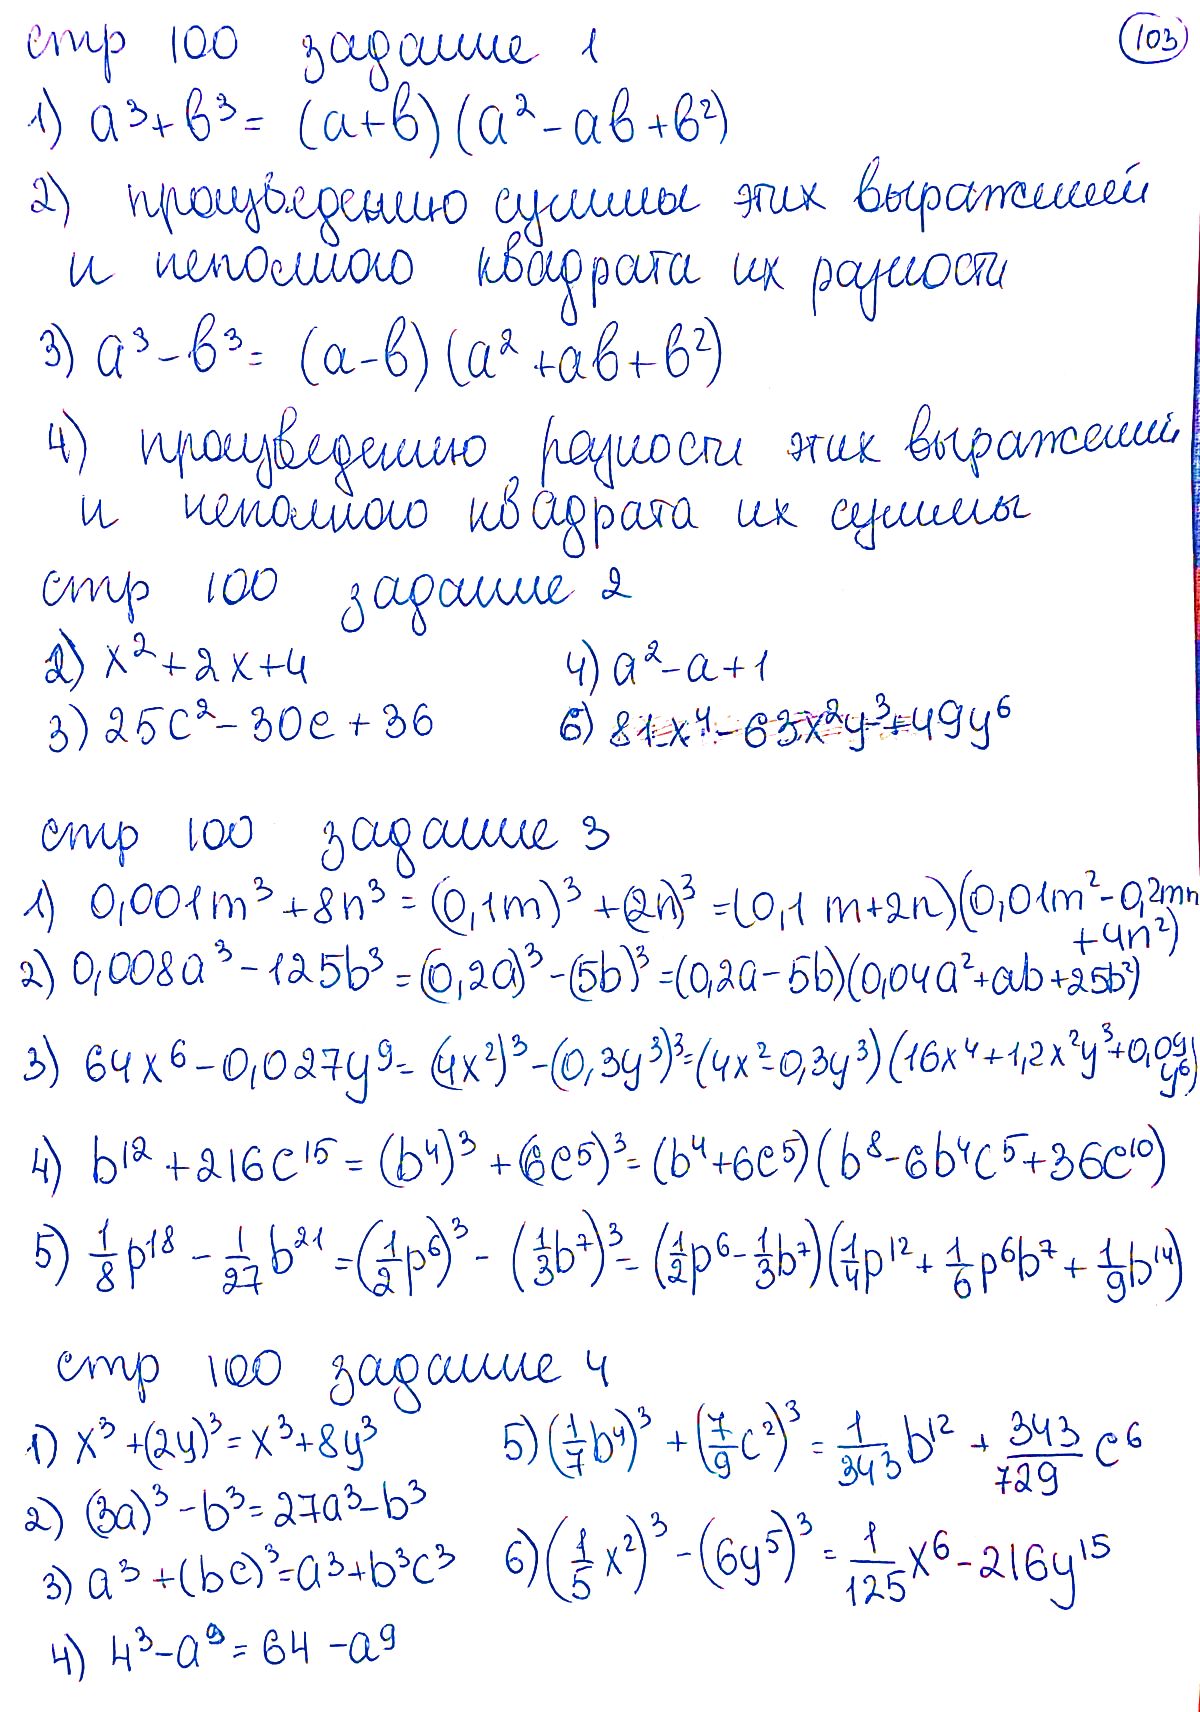 стр 100 задание 1
103
1) a³+b³= (a+b)(a²-ab+b²)
2) произведению суммы этих выражений
и неполного квадрата их разности
3) a³-b³= (a-b)(a²+ab+b²)
4) произведению разности этих выражений
и неполного квадрата их суммы
стр 100 задание 2
2) x²+2x+4 4) a²-a+1
3) 25c²-30c+36 6) 81x⁴-63x²y³+49y⁶
стр 100 задание 3
1) 0,001m³+8n³=(0,1m)³+(2n)³=(0,1m+2n)(0,01m²-0,2mn
+4n²)
2) 0,008a³-125b³=(0,2a)³-(5b)³=(0,2a-5b)(0,04a²+ab+25b²)
3) 64x⁶-0,027y⁹=(4x²)³-(0,3y³)³=(4x²-0,3y³)(16x⁴+1,2x²y³+0,09
y⁶)
4) b¹²+216c¹⁵=(b⁴)³+(6c⁵)³=(b⁴+6c⁵)(b⁸-6b⁴c⁵+36c¹⁰)
5) 1/8p¹⁸-1/27b²¹=(1/2p⁶)³-(1/3b⁷)³=(1/2p⁶-1/3b⁷)(1/4p¹²+1/6p⁶b⁷+1/9b¹⁴)
стр 100 задание 4
1) x³+(2y)³=x³+8y³ 5) (1/7b⁴)³+(7/9c²)³=1/343b¹²+343/729c⁶
2) (3a)³-b³=27a³-b³
3) a³+(bc)³=a³+b³c³ 6) (1/5x²)³-(6y⁵)³=1/125x⁶-216y¹⁵
4) 4³-a⁹=64-a⁹